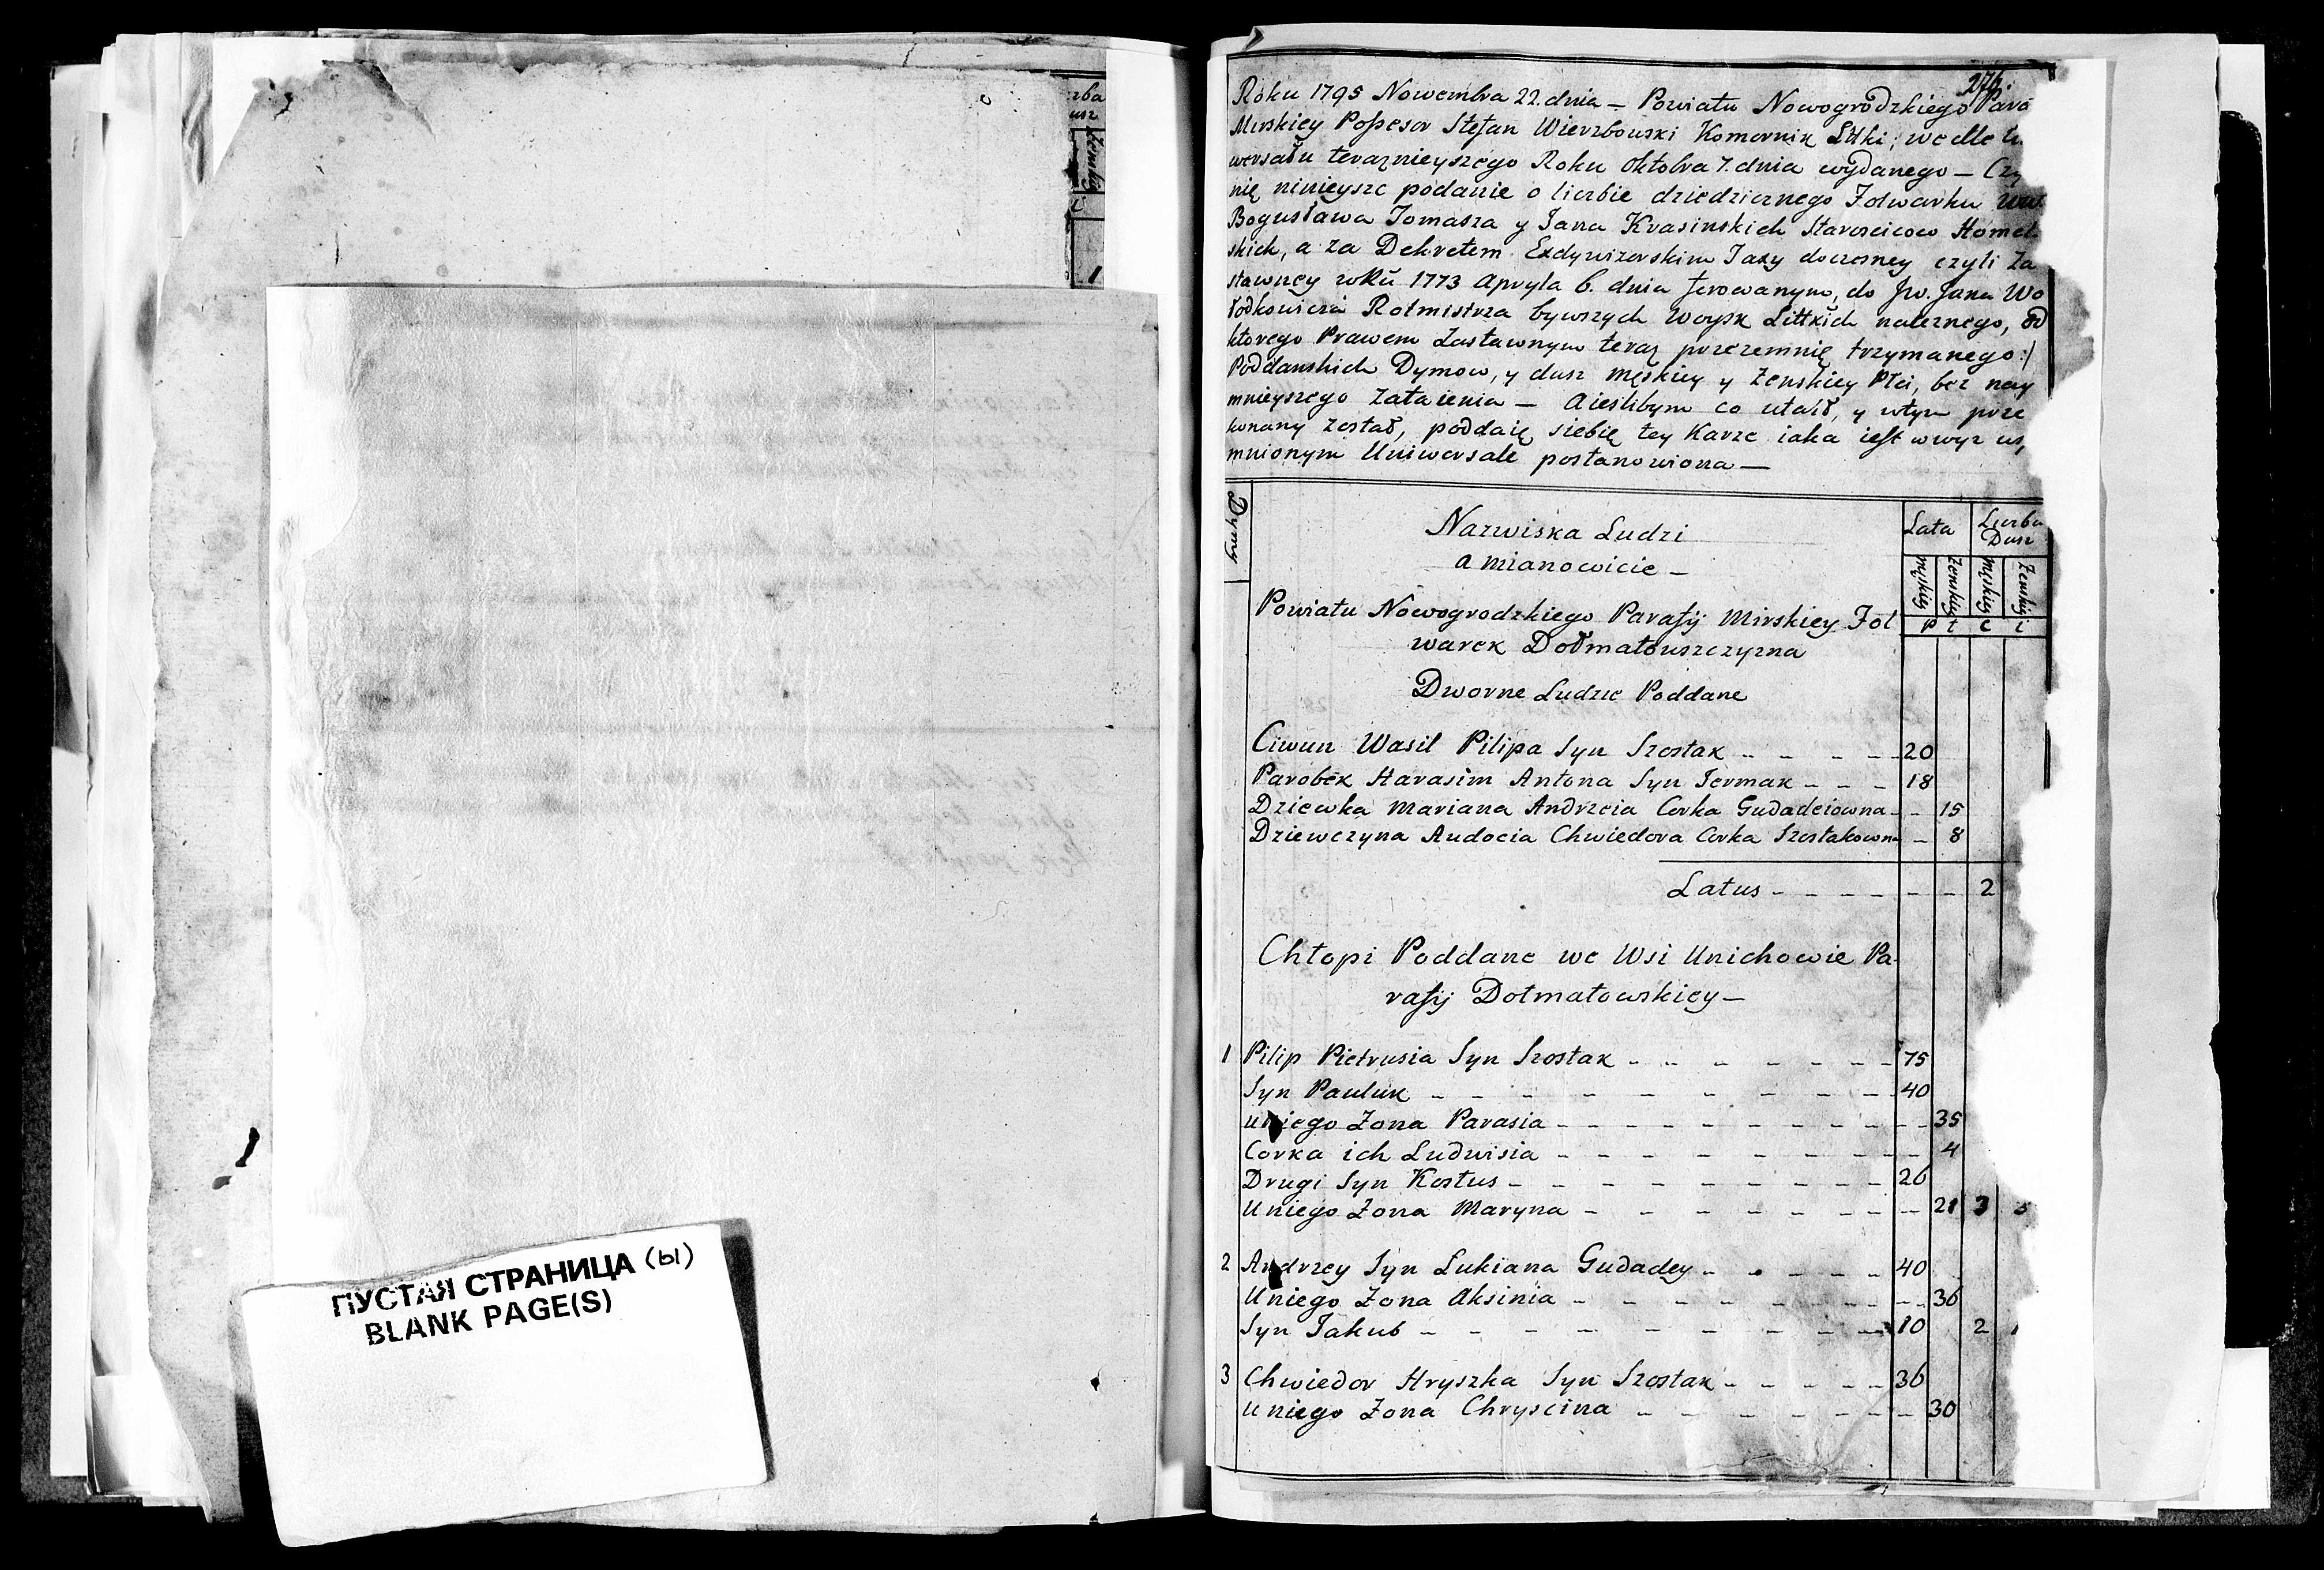 ПУСТАЯ СТРАНИЦА (ы)
BLANK PAGE(S)
276.
Roku 1795 Nowembra 22. dnia – Powiatu Nowogrodzkiego Para
Mirskiey Possesor Stefan Wierzbouski Komornik Littki; wedle
wersału teraznieyszego Roku Oktobra 7. dnia wydanego – Czy
nię ninieysze podanie o liczbie dziedzicznego Folwarku
Bogusława Tomasza y Jana Krasinskich Staroscicow Homel
skich, a za Dekretem Exdywizorskim Taxy doczesney czyli Za
stawney roku 1773 Apryla 6. dnia ferowanym, do Jw. Jana Wo
łodkowicza Rotmistrza bywszych Woysk Littkich naleznego, od
ktorego Prawem Zastawnym teraz przezemnię trzymanego:/
Poddanskich Dymow, y dusz męskiey y żenskiey Płci, bez nay
mnieyszego zataienia – A ieslibym co utaił, y wtym prze
konany został, poddaię siebię tey Karze iaka iest w wyz
mnionym Uniwersale postanowiona –
Dymy
Nazwiska Ludzi
a mianowicie –
Lata
Liczba
Dusz
męskiey
Zenskiey
męskiey
Zenskiey
P ł c i
Powiatu Nowogrodzkiego Parafij Mirskiey Fol
warek Dołmatouszczyzna
Dworne Ludzie Poddane
Ciwun Wasil Pilipa Syn Szostak – – – – – 20
Parobek Harasim Antona Syn Jermak – – – 18
Dziewka Mariana Andrzeia Corka Gudadeiowna – – 15
Dziewczyna Audocia Chwiedora Corka Szostakown – 8
Latus – – – – – – – 2
Chłopi Poddane we Wsi Unichowie Pa-
rafij Dołmatowskiey –
1 Pilip Pietrusia Syn Szostak – – – – – – 75
Syn Pauluk – – – – – – – – – 40
Uniego Zona Parasia – – – – – – – – – – 35
Corka ich Ludwisia – – – – – – – – – 4
Drugi Syn Kostus – – – – – – – – – 26
Uniego Zona Maryna – – – – – – – – 21 3
2 Andrzey Syn Lukiana Gudadey – – – – – 40
Uniego Zona Aksinia – – – – – – – – – 36
Syn Jakub – – – – – – – – – 10 2 1
3 Chwiedor Hryszka Syn Szostak – – – – – 36
Uniego Zona Chryscina – – – – – – – 30